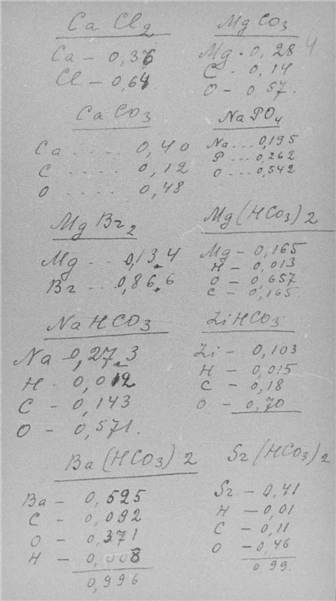 CaCl2
Ca - 0,36
Cl - 0,64
MgCO3
Mg - 0,28
C - 0,14
O - 0,57.
4
CaCO3
Ca .... 0,40
C .... 0,12
O .... 0,48
NaPO4
Na ... 0,195
P ... 0,262
O ... 0,542
MgBr2
Mg .. 0,13.4
Br .. 0,86.6
Mg(HCO3)2
Mg - 0,165
H - 0,013
O - 0,657
C - 0,165
NaHCO3
Na - 0,27.3
H - 0,012
C - 0,143
O - 0,571.
LiHCO3
Li - 0,103
H - 0,015
C - 0,18
O - 0,70
Ba(HCO3)2
Ba - 0,525
C - 0,092
O - 0,371
H - 0,008
0,996
Sr(HCO3)2
Sr - 0,41
H - 0,01
C - 0,11
O - 0,46
0,99.